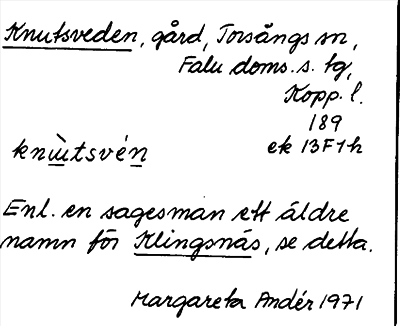 Knutsveden, gård, Torsångs sn,
Falu doms. s. tg,
Kopp. l.
189
knùtsvén ek 13F1h
Enl. en sagesman ett äldre
namn för Klingsnäs, se detta.
Margareta Andér 1971